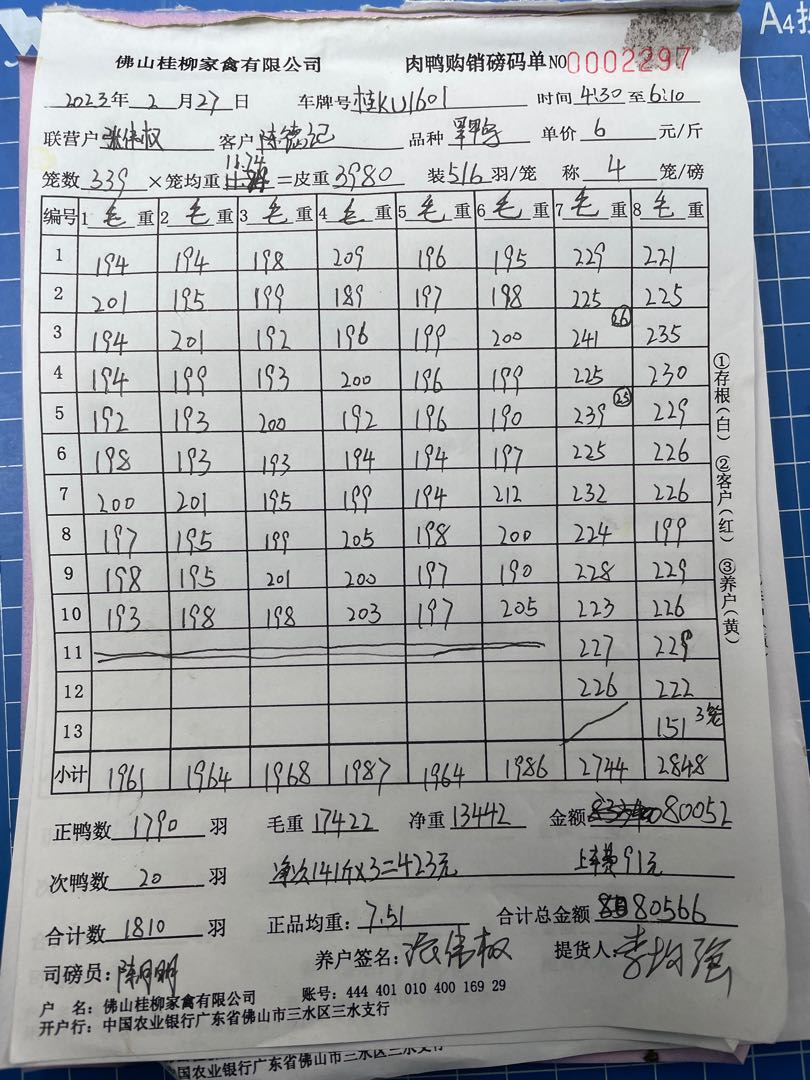 A4
佛山桂柳家禽有限公司 肉鸭购销磅码单 NO 0002297
2023年 2 月 27 日 车牌号 桂KU1601 时间 4:30 至 6:10
联营户 张伟权 客户 陈德记 品种 单价 6 元/斤
11.74
笼数 339 ×笼均重 =皮重 3980 装 5/6 羽/笼 称 4 笼/磅
编号 1 毛 重 2 毛 重 3 毛 重 4 毛 重 5 毛 重 6 毛 重 7 毛 重 8 毛 重
1 194 194 198 209 196 195 229 221
2 201 195 199 189 197 198 225 225
3 194 201 192 196 199 200 241 26 235
4 194 199 193 200 196 199 225 230
5 192 193 200 192 196 190 239 25 229
6 198 193 193 194 194 197 225 226
7 200 201 195 199 194 212 232 226
8 197 195 199 205 198 200 224 199
9 198 195 201 200 197 190 228 229
10 193 198 198 203 197 205 223 226
11 227 229
12 226 222
13 151 3笼
小计 1961 1964 1968 1987 1964 1986 2744 2848
①存根(白) ②客户(红) ③养户(黄)
正鸭数 1790 羽 毛重 17422 净重 13442 金额 80052
次鸭数 20 羽 净次141斤×3=423元 上车费91元
合计数 1810 羽 正品均重: 7.51 合计总金额 80566
司磅员: 陈月明 养户签名: 张伟权 提货人: 李均强
户 名: 佛山桂柳家禽有限公司 账号: 444 401 010 400 169 29
开户行: 中国农业银行广东省佛山市三水区三水支行
国农业银行广东省佛山市三水区三水支行